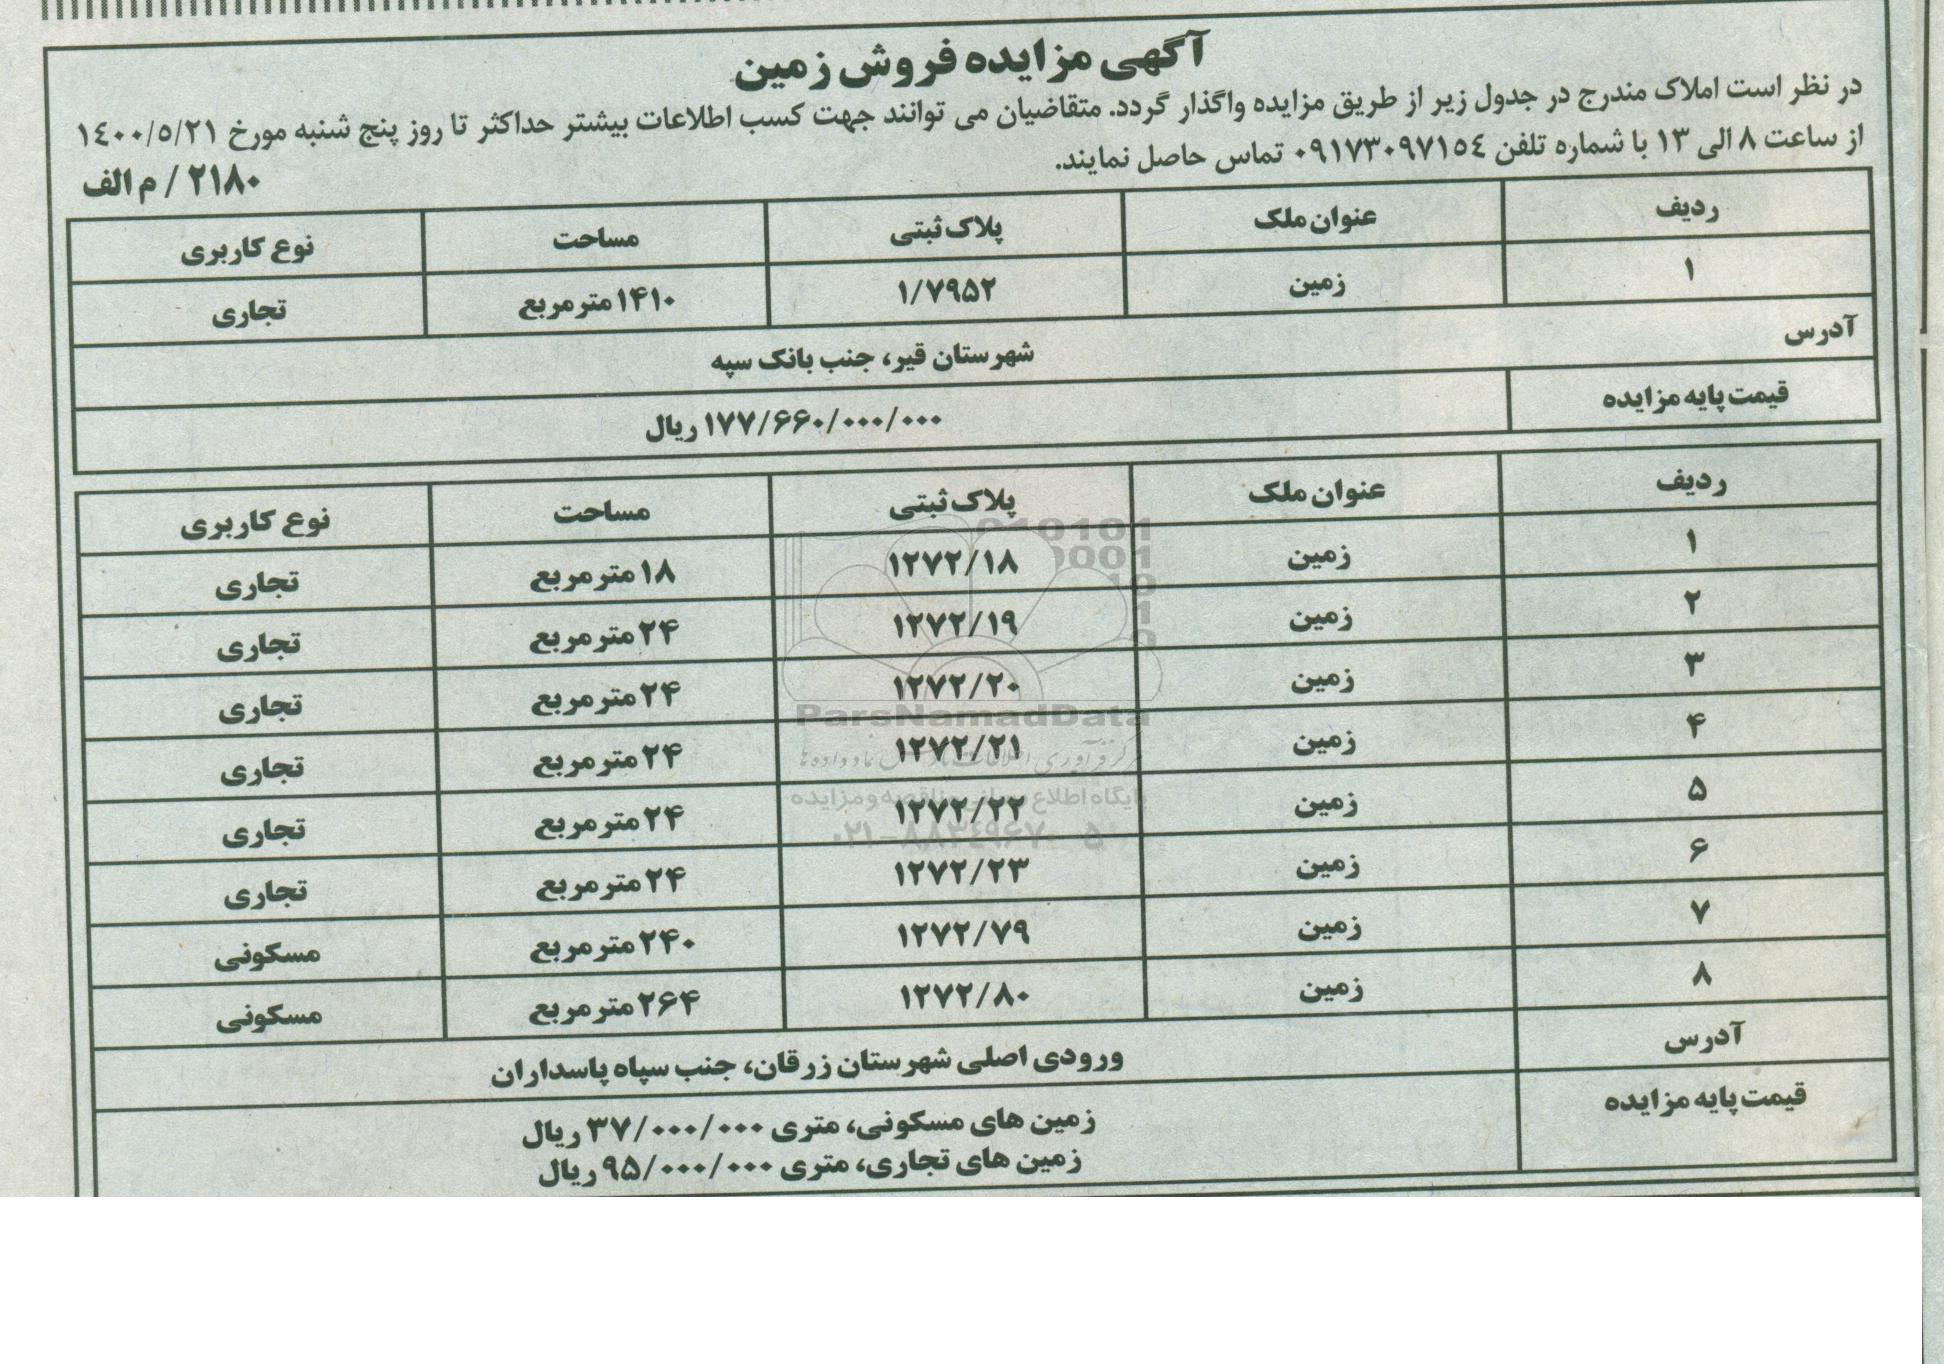 آگهی مزایده فروش زمین
در نظر است املاک مندرج در جدول زیر از طریق مزایده واگذار گردد. متقاضیان می توانند جهت کسب اطلاعات بیشتر حداکثر تا روز پنج شنبه مورخ ۱۴۰۰/۵/۲۱
از ساعت ۸ الی ۱۳ با شماره تلفن ۰۹۱۷۳۰۹۷۱۵۴ تماس حاصل نمایند.
۲۱۸۰ / م الف
ردیف عنوان ملک پلاک ثبتی مساحت نوع کاربری
۱ زمین ۱/۷۹۵۲ ۱۴۱۰ مترمربع تجاری
آدرس شهرستان قیر، جنب بانک سپه
قیمت پایه مزایده ۱۷۷/۶۶۰/۰۰۰/۰۰۰ ریال
ردیف عنوان ملک پلاک ثبتی مساحت نوع کاربری
۱ زمین ۱۲۷۲/۱۸ ۱۸ مترمربع تجاری
۲ زمین ۱۲۷۲/۱۹ ۲۴ مترمربع تجاری
۳ زمین ۱۲۷۲/۲۰ ۲۴ مترمربع تجاری
۴ زمین ۱۲۷۲/۲۱ ۲۴ مترمربع تجاری
۵ زمین ۱۲۷۲/۲۲ ۲۴ مترمربع تجاری
۶ زمین ۱۲۷۲/۲۳ ۲۴ مترمربع تجاری
۷ زمین ۱۲۷۲/۷۹ ۲۴۰ مترمربع مسکونی
۸ زمین ۱۲۷۲/۸۰ ۲۶۴ مترمربع مسکونی
آدرس ورودی اصلی شهرستان زرقان، جنب سپاه پاسداران
قیمت پایه مزایده زمین های مسکونی، متری ۳۷/۰۰۰/۰۰۰ ریال
زمین های تجاری، متری ۹۵/۰۰۰/۰۰۰ ریال
ParsNamadData